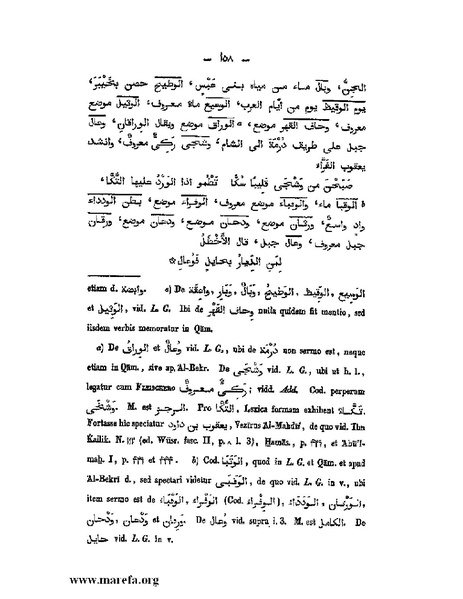 — ١٥٨ —
الجِنّ، وبَالٌ ماء من مياه بنى عَبْس، الوَطِيحُ حصن بخَيْبَرَ،
يوم الوَقِيظ يوم من أيّام العرب، الوَسِيعُ ماءٌ معروف، الوَتِيلُ موضع
معروف، وحَافُ القَهْر موضع، a الوِرَاقُ موضع ويقال الوِرَاقَانِ، وعَال
جبل على طريف ذُرْمَةَ الى الشام، وَشْحَى رَكِىٌّ معروفٌ، وانشد
يعقوب القَرَّاء
صَبَّحْنَ من وَشْحَى قَلِيبًا سُكَّا تَطْمُو اذا الوِرْدُ عليها التَّكَّا،
b الوَقْبَا ماء، والوَقْبَاء موضع معروف، الوَفْرَاء موضع، بطن الوَدْدَاء
وادٍ واسعٌ، وَرْثَان موضع، ودَحَان موضع، ودْعَان موضع، وَرْقَان
جبل معروف، وعَال جبل، قال الأَخْطَلُ
لِمَنِ الدِّيَارُ بِحَايِلٍ فَوُعَالِ *
etiam d. وابصة. e) De الوَسِيع, الوَقِيظ, الوَطِيح, وبَالٌ, وبَار, واهِقَة
et الوَتِيل, vid. L. G. Ibi de وحَاف القَهْر nulla quidem fit mentio, sed
iisdem verbis memoratur in Qâm.
a) De الوِرَاقُ et وُعَالٌ vid. L. G., ubi de ذُرْمَة non sermo est, neque
etiam in Qâm., sive ap. Al-Bekr. De وَشْحَى vid. L. G., ubi ut h. l.,
legatur cum FLEISCHERO رَكِىٌّ معروفٌ; vidd. Add. Cod. perperam
وَشْحَى. M. est الرجز. Pro التَّكَّا, Lexica formam exhibent تَكَّاهُ.
Fortasse hic spectatur يعقوب بن داود, Vezîrus Al-Mahdîi, de quo vid. Ibn
Kallik. N. (ed. Wüst. fasc. II, p. ٨ l. 3), Hamâs., p. et Abu'l-
mah. I, p. et b) Cod. الوَقْبَا, quod in L. G. et Qâm. et apud
Al-Bekrî d., sed spectari videtur الوَقَبَى, de quo vid. L. G. in v., ubi
item sermo est de الوَقْبَاء, الوَفْرَاء (Cod. الوِفْرَاء), الوَدْدَاء, وَرْثَان,
وَدْحَان et وَدْعَان, وَرْقَان. De وُعَال vid. supra l. 3. M. est الكامل. De
حايل vid. L. G. in v.
www.marefa.org